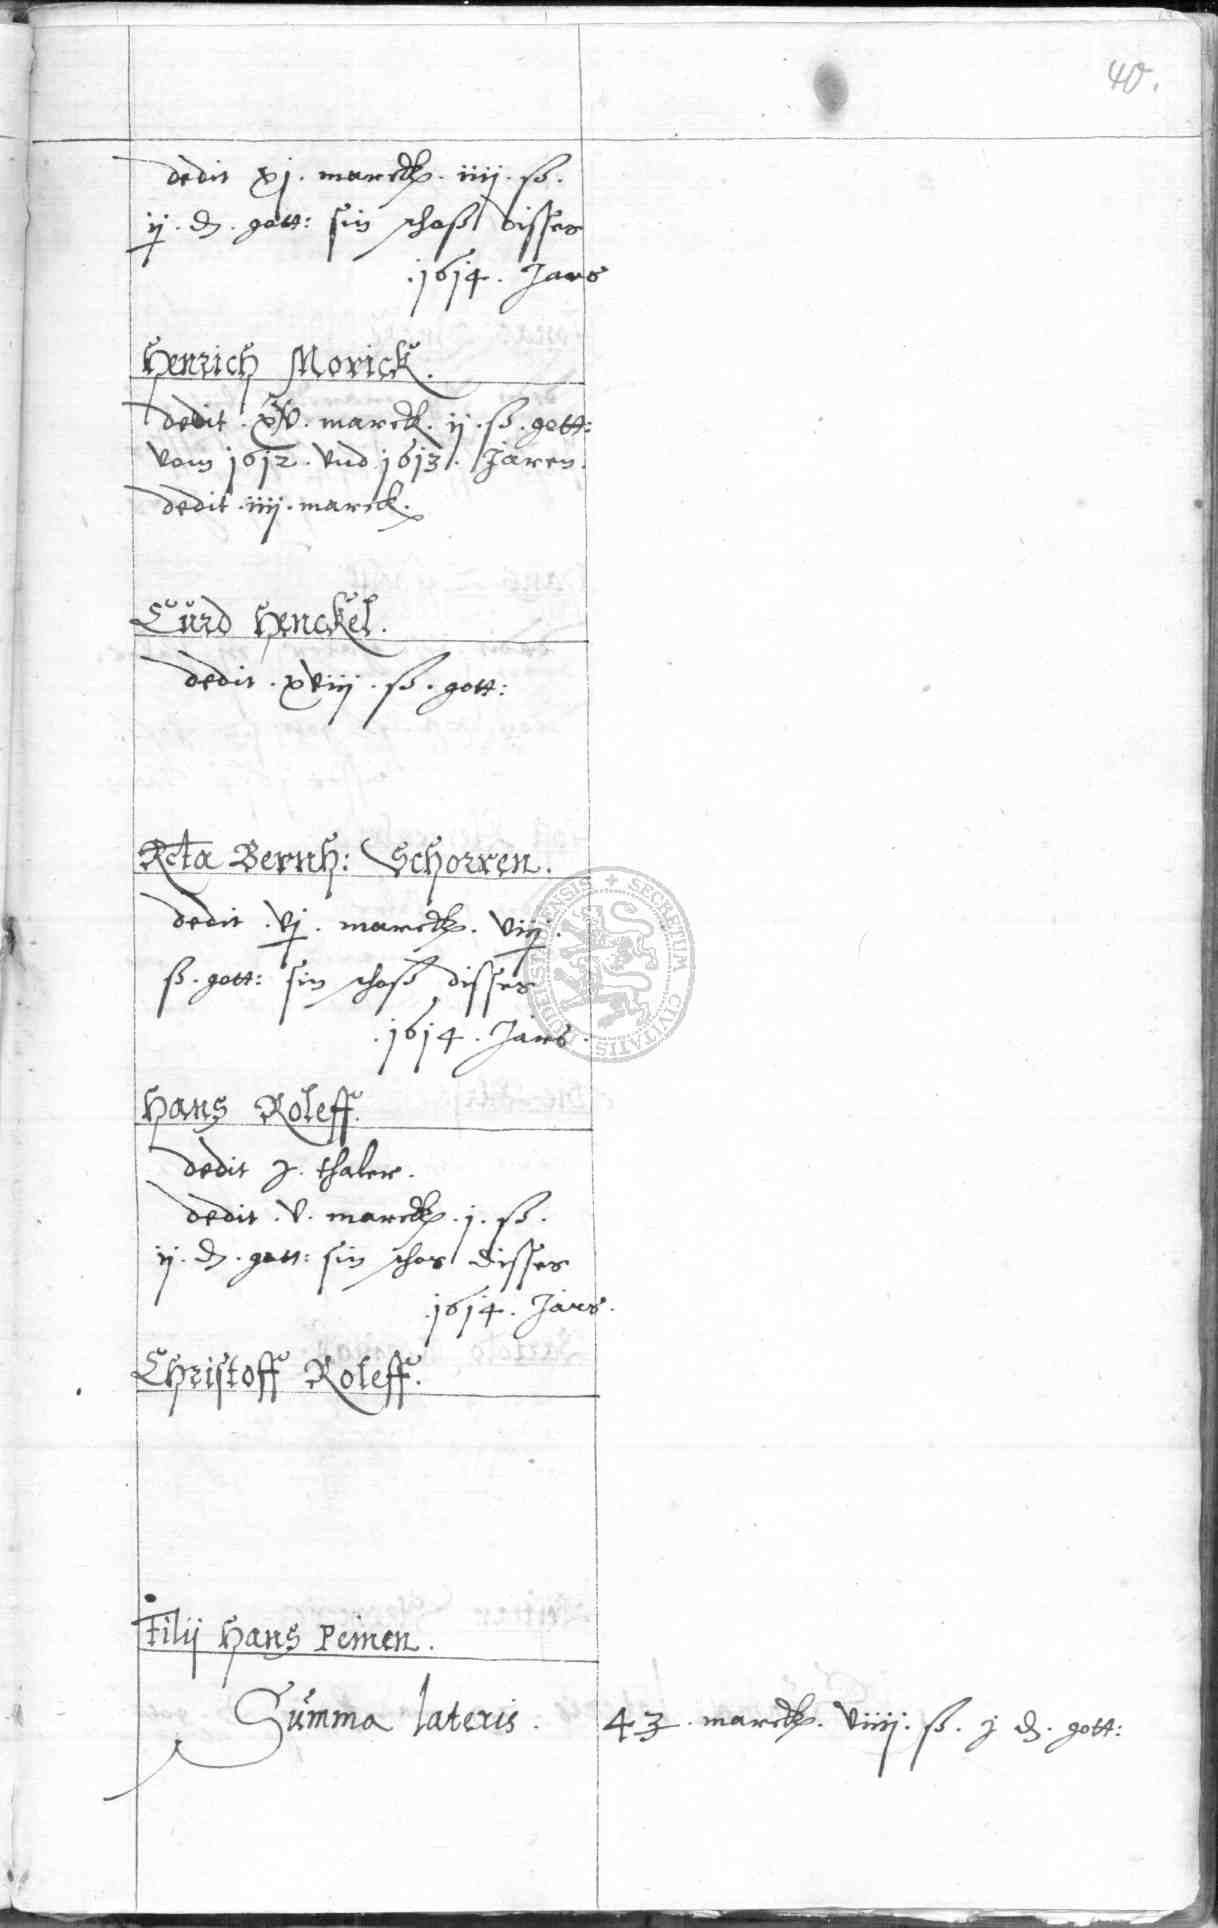 40.
dedit xj. marck. iiij. ß.
ij. d. gott: sin schoß disses
.1614. Jars
Henrich Morick.
dedit. xv. marck. ij. ß. gott:
vom 1612. vnd 1613. Jaren.
dedit. iiij. marck.
Curd Henckel.
dedit. xviij. ß. gott:
Rcta Bernh: Schorren.
dedit. vj. marck. viij.
ß. gott: sin schoß disses
.1614. Jars.
Hans Roleff.
dedit j. thaler.
dedit. v. marck. j. ß.
ij. d. gott: sin schos disses
.1614. Jars.
Christoff Roleff.
Filij Hans Peinen.
Summa lateris. 43. marck. viiij. ß. j d. gott:
SECRETUM CIVITATIS